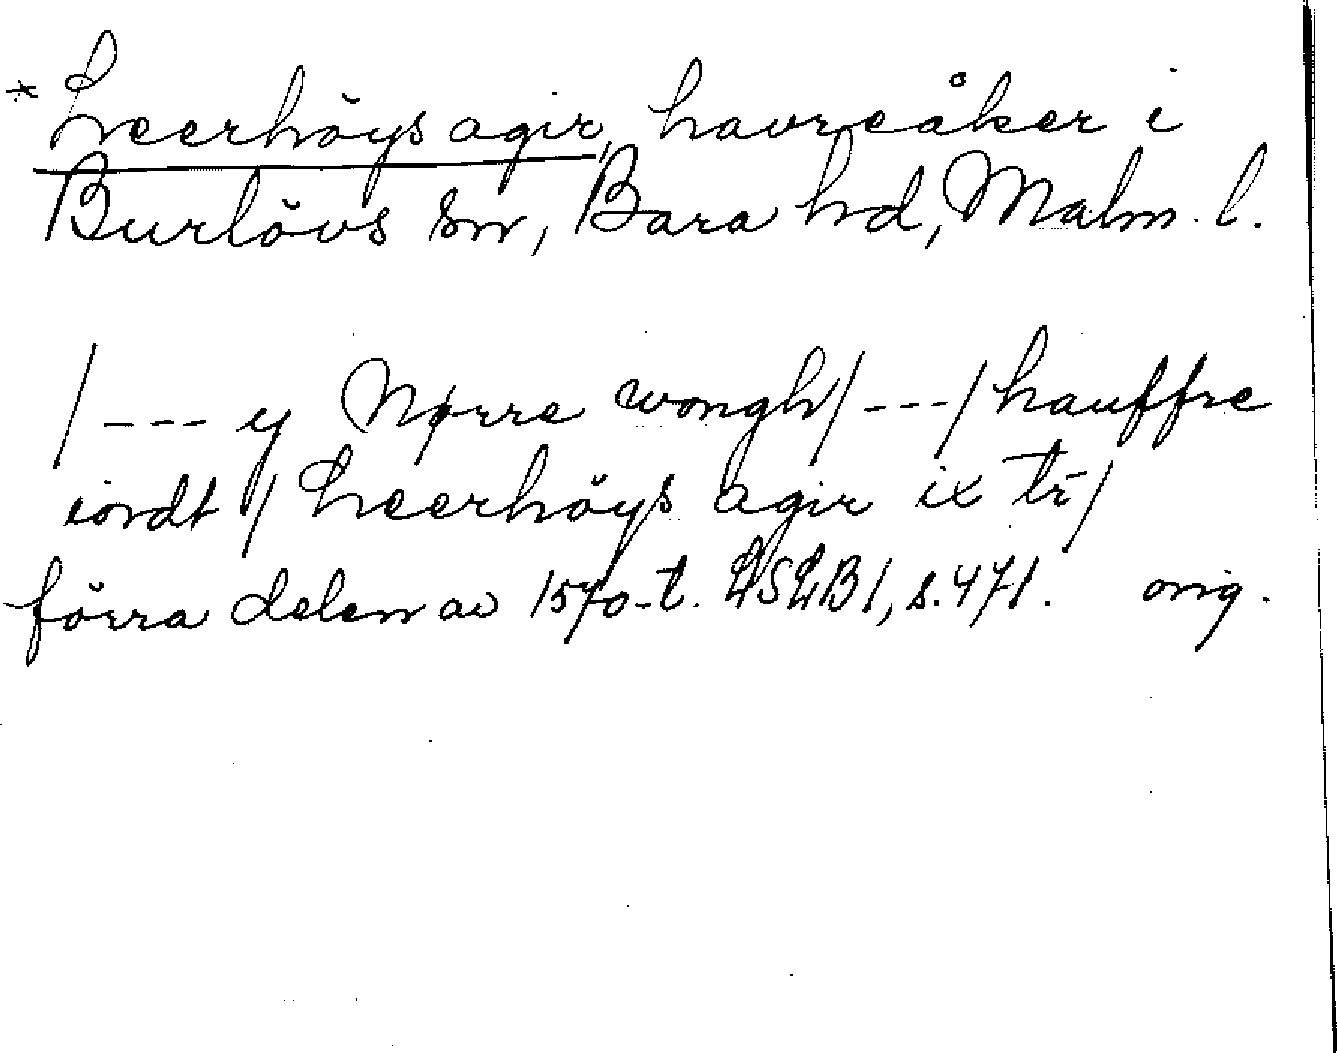 * Leerhöys agir, havreåker i
Burlövs sn, Bara hd, Malm. l.
/--- y Nørre wongh/---/hauffre
iordt/ Leerhöys agir ix tr/
förra delen av 1570-t. LSLB1, s.471. orig.